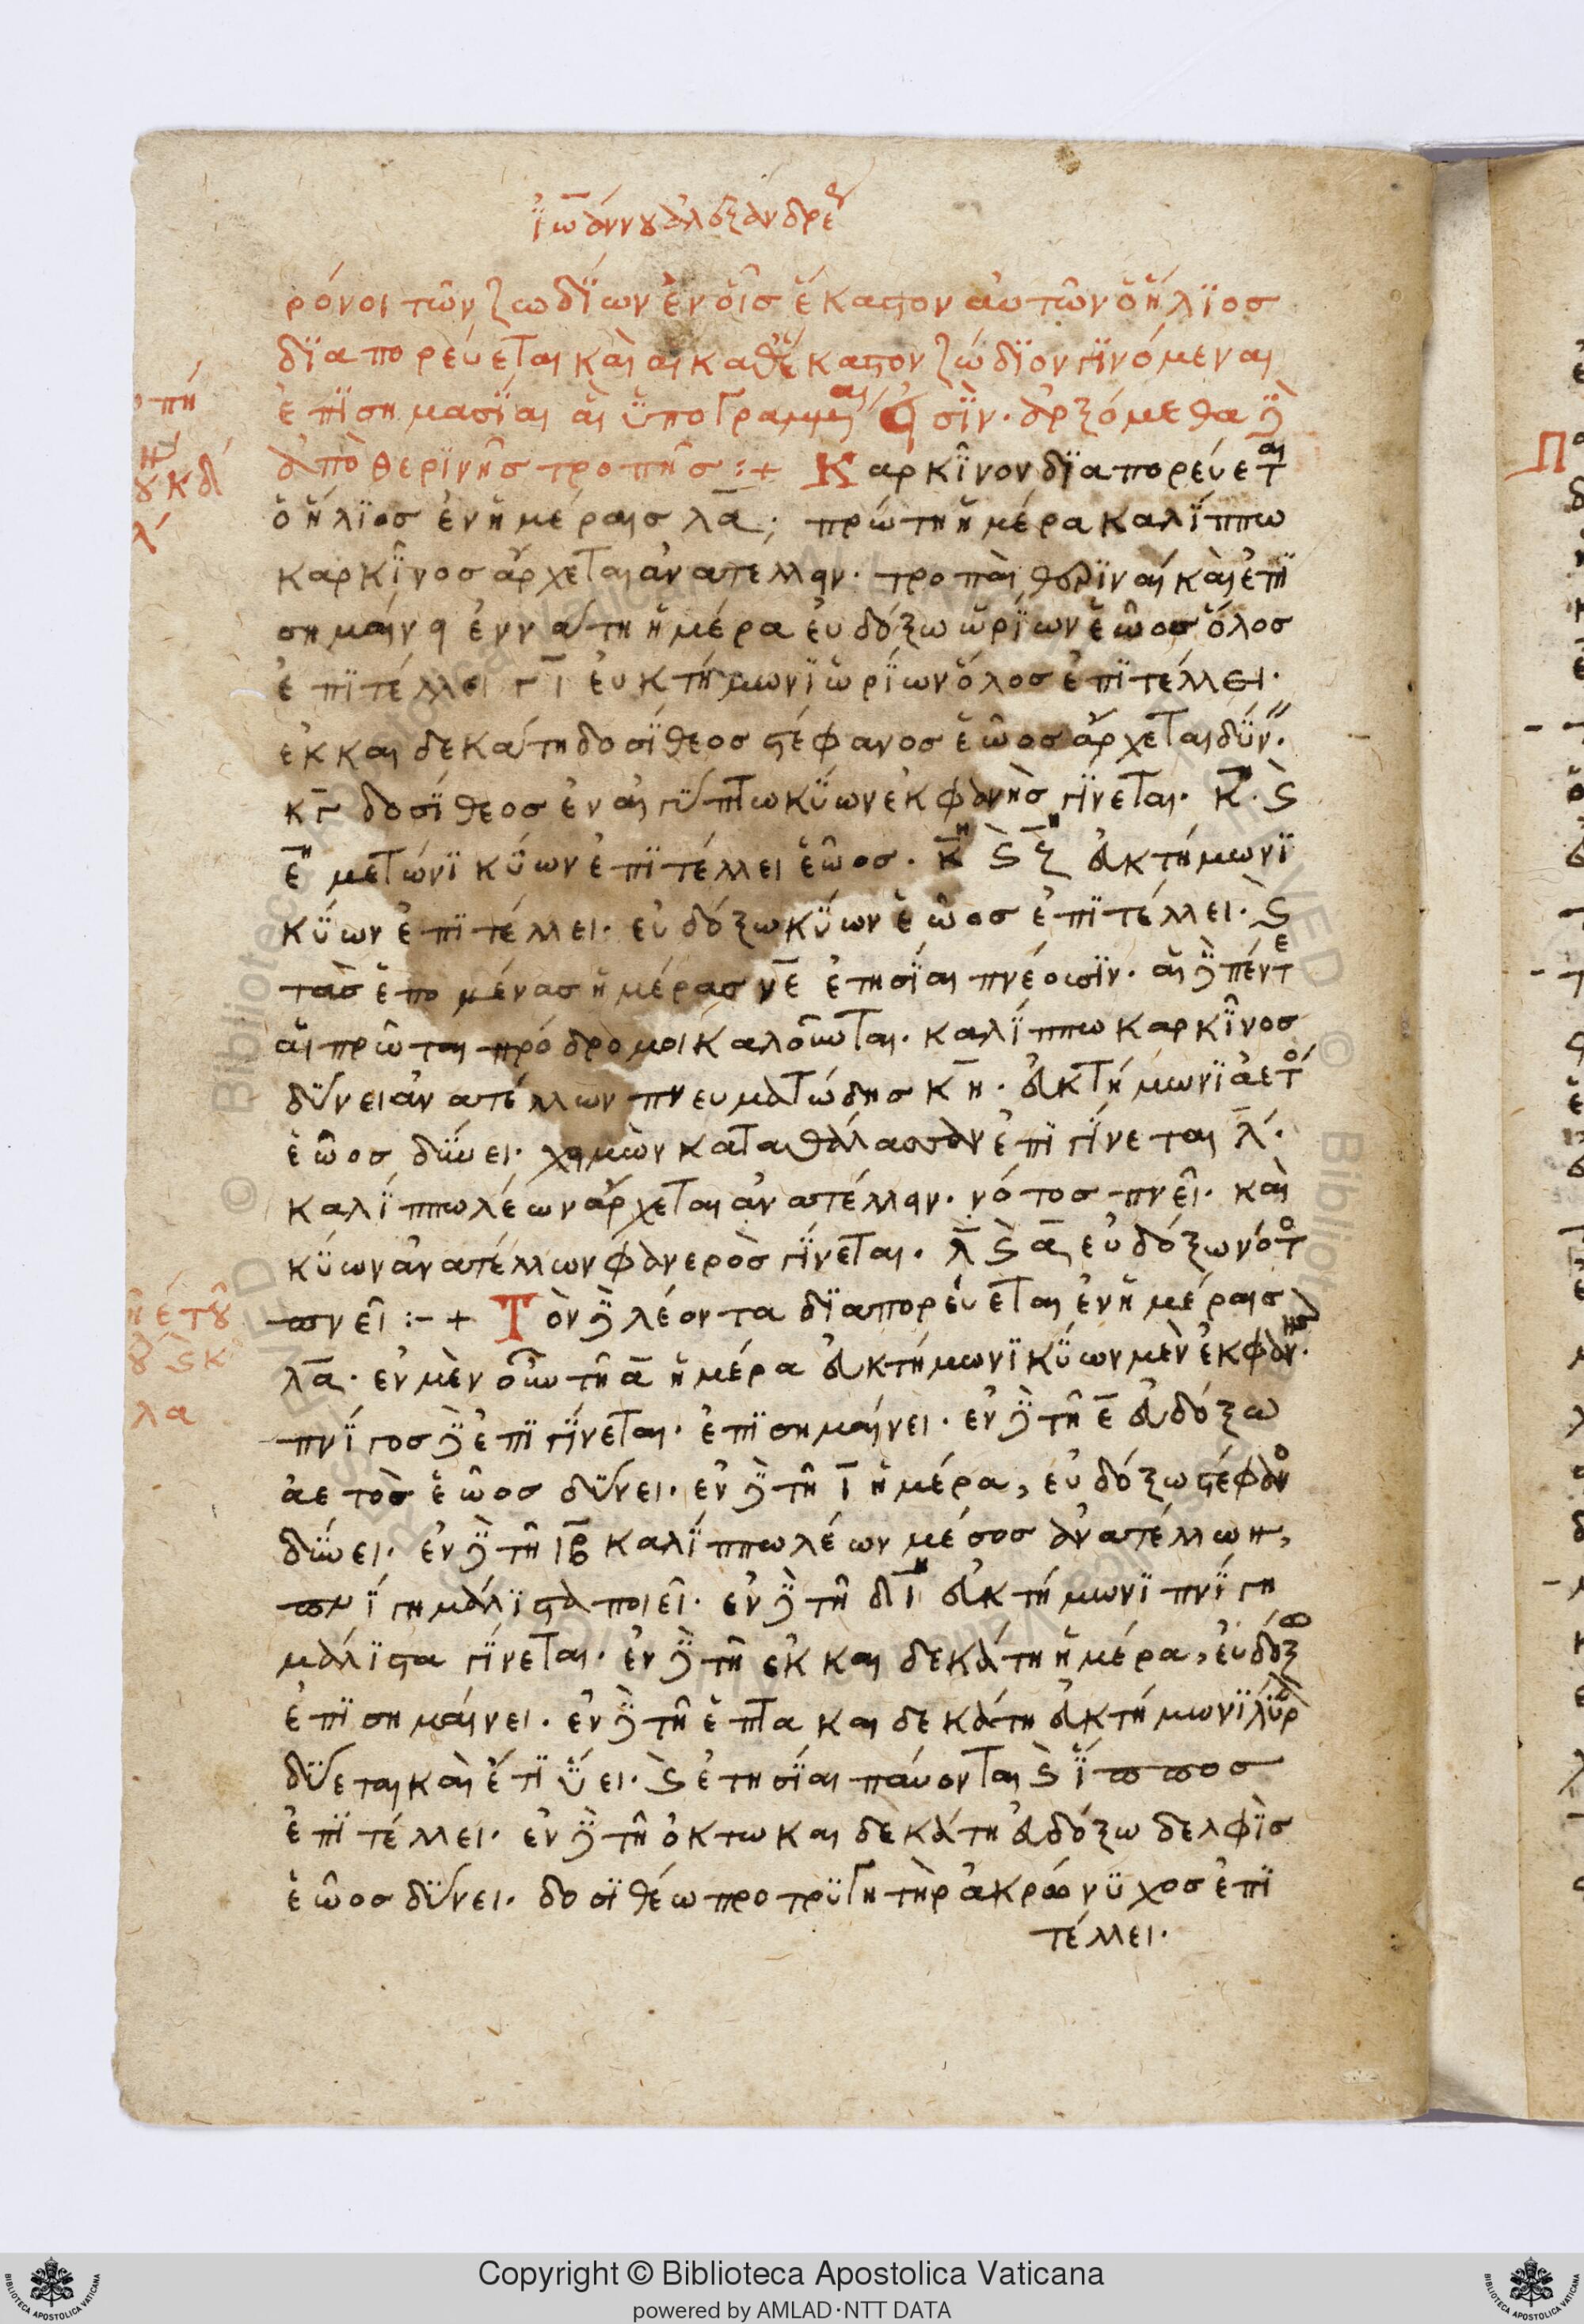 Ἰωάννου ἀλεξανδρέ
ρόνοι τῶν ζωδΐων ἐν οἷσ ἕκαστον αὐτῶν ὁ ἥλϊοσ
δϊαπορεύεται καὶ αι καθ ἕκαστον ζώδϊον γϊνόμεναι
ἐπϊσημασίαι αἳ ὑπογεγραμμέναι εἰσϊν. ἀρξόμεθα δὲ
ἀπὸ θερϊνῆσ τροπῆσ :+ Καρκῖνον δϊαπορεύεται
ὁ ἥλϊοσ ἐν ἡμέραισ λα; πρώτη ἡμέρα καλίππω
καρκῖνοσ ἄρχεται ἀνατελλειν. τροπαὶ θερϊναί καὶ ἐπϊ
σημαίνει ἐννάτη ἡμέρα εὐδόξω ὠρίων ἑῶοσ ὅλοσ
ἐπϊτέλλει γι εὐκτήμωνϊ ὠρίων ὅλοσ ἐπϊτέλλει.
ἑκκαιδεκάτη δοσίθεοσ στέφανοσ ἑῶοσ ἄρχεται δύν.
κγ δοσίθεοσ ἐν αἰγύπτω κύων ἐκφανὴσ γίνεται. κ. ϛ
ε μετώνϊ κύων ἐπϊτέλλει ἑῶοσ. κ ϛ ζ εὐκτήμωνϊ
κύων ἐπϊτέλλει. εὐδόξω κύων ἑῶοσ ἐπϊτέλλει. ϛ
τὰσ ἑπομένασ ἡμέρασ νε ἐτησίαι πνέουσϊν. αἱ δὲ πέντε
αἱ πρῶται πρόδρομοι καλοῦνται. καλίππω καρκῖνοσ
δύνει ἀνατέλλων πνευματώδησ κη. εὐκτήμωνϊ ἀετό
ἑῶοσ δύνει. χειμὼν κατα θάλασσαν ἐπιγίνεται λ.
καλίππω λέων ἄρχεται ἀνατέλλειν. νότοσ πνεῖ. καὶ
κύων ἀνατέλλων φανερὸσ γίνεται. λ ϛ α εὐδόξω νότο
πνεῖ :- + Τὸν δὲ λέοντα δϊαπορεύεται ἐν ἡμέραισ
λα. εν μὲν οὖν τῆ α ἡμέρα εὐκτήμωνϊ κύων μὲν ἐκφαν.
πνίγοσ δὲ ἐπιγίνεται. ἐπϊσημαίνει. εν δὲ τῆ ε εὐδόξω
ἀετὸσ ἑῶοσ δύνει. εν δὲ τῆ ι ἡμέρα, εὐδόξω στέφανο
δύνει. ἐν δὲ τῆ ιβ καλίππω λέων μέσοσ ἀνατέλλων,
πνίγη μάλιστα ποιεῖ. εν δὲ τῆ δι εὐκτήμωνϊ πνίγη
μάλιστα γίνεται. ἐν δὲ τῆ ἑκκαιδεκάτη ἡμέρα, εὐδόξω
ἐπϊσημαίνει. ἐν δὲ τῆ ἑπτακαιδεκάτη εὐκτήμωνϊ λύρα
δύεται καὶ ἔτϊ ὕει. ϛ ἐτησίαι παύονται ϛ ἵπποσ
ἐπϊτέλλει. εν δὲ τῆ ὀκτωκαιδεκάτη εὐδόξω δελφὶσ
ἑῶοσ δύνει. δοσϊθέω προτρϋγητὴρ ἀκρόνυχοσ ἐπϊ
τέλλει.